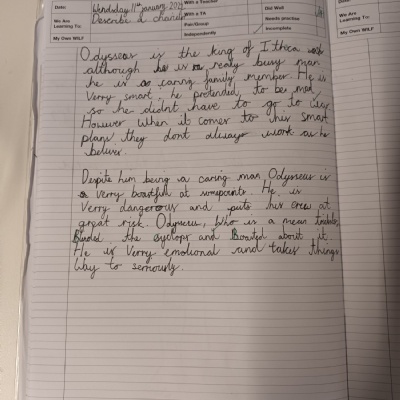 Date: Wednesday 11th January
We Are Learning To: Describe a
My Own WILF
With a Teacher
With a TA
Pair/Group
Independently
Did Well
Needs practice
Incomplete
Date:
We Are Learning To:
My Own WILF
Odysseus is the king of Ithica
although he is a really busy man
he is a caring family member. He is
Verry smart, he pretended to be mad
so he didnt have to go to
However when it comes to his smart
plans they dont always work as he
beliver.
Despite him being a caring man, Odysseus is
a verry boastful at somepoints. He is
Verry dangerous and puts his crew at
great risk. Odysseus, Who is a mean
Blinded the cyclops and Boasted about it.
He is Verry emotional and takes things
Way to seriously.